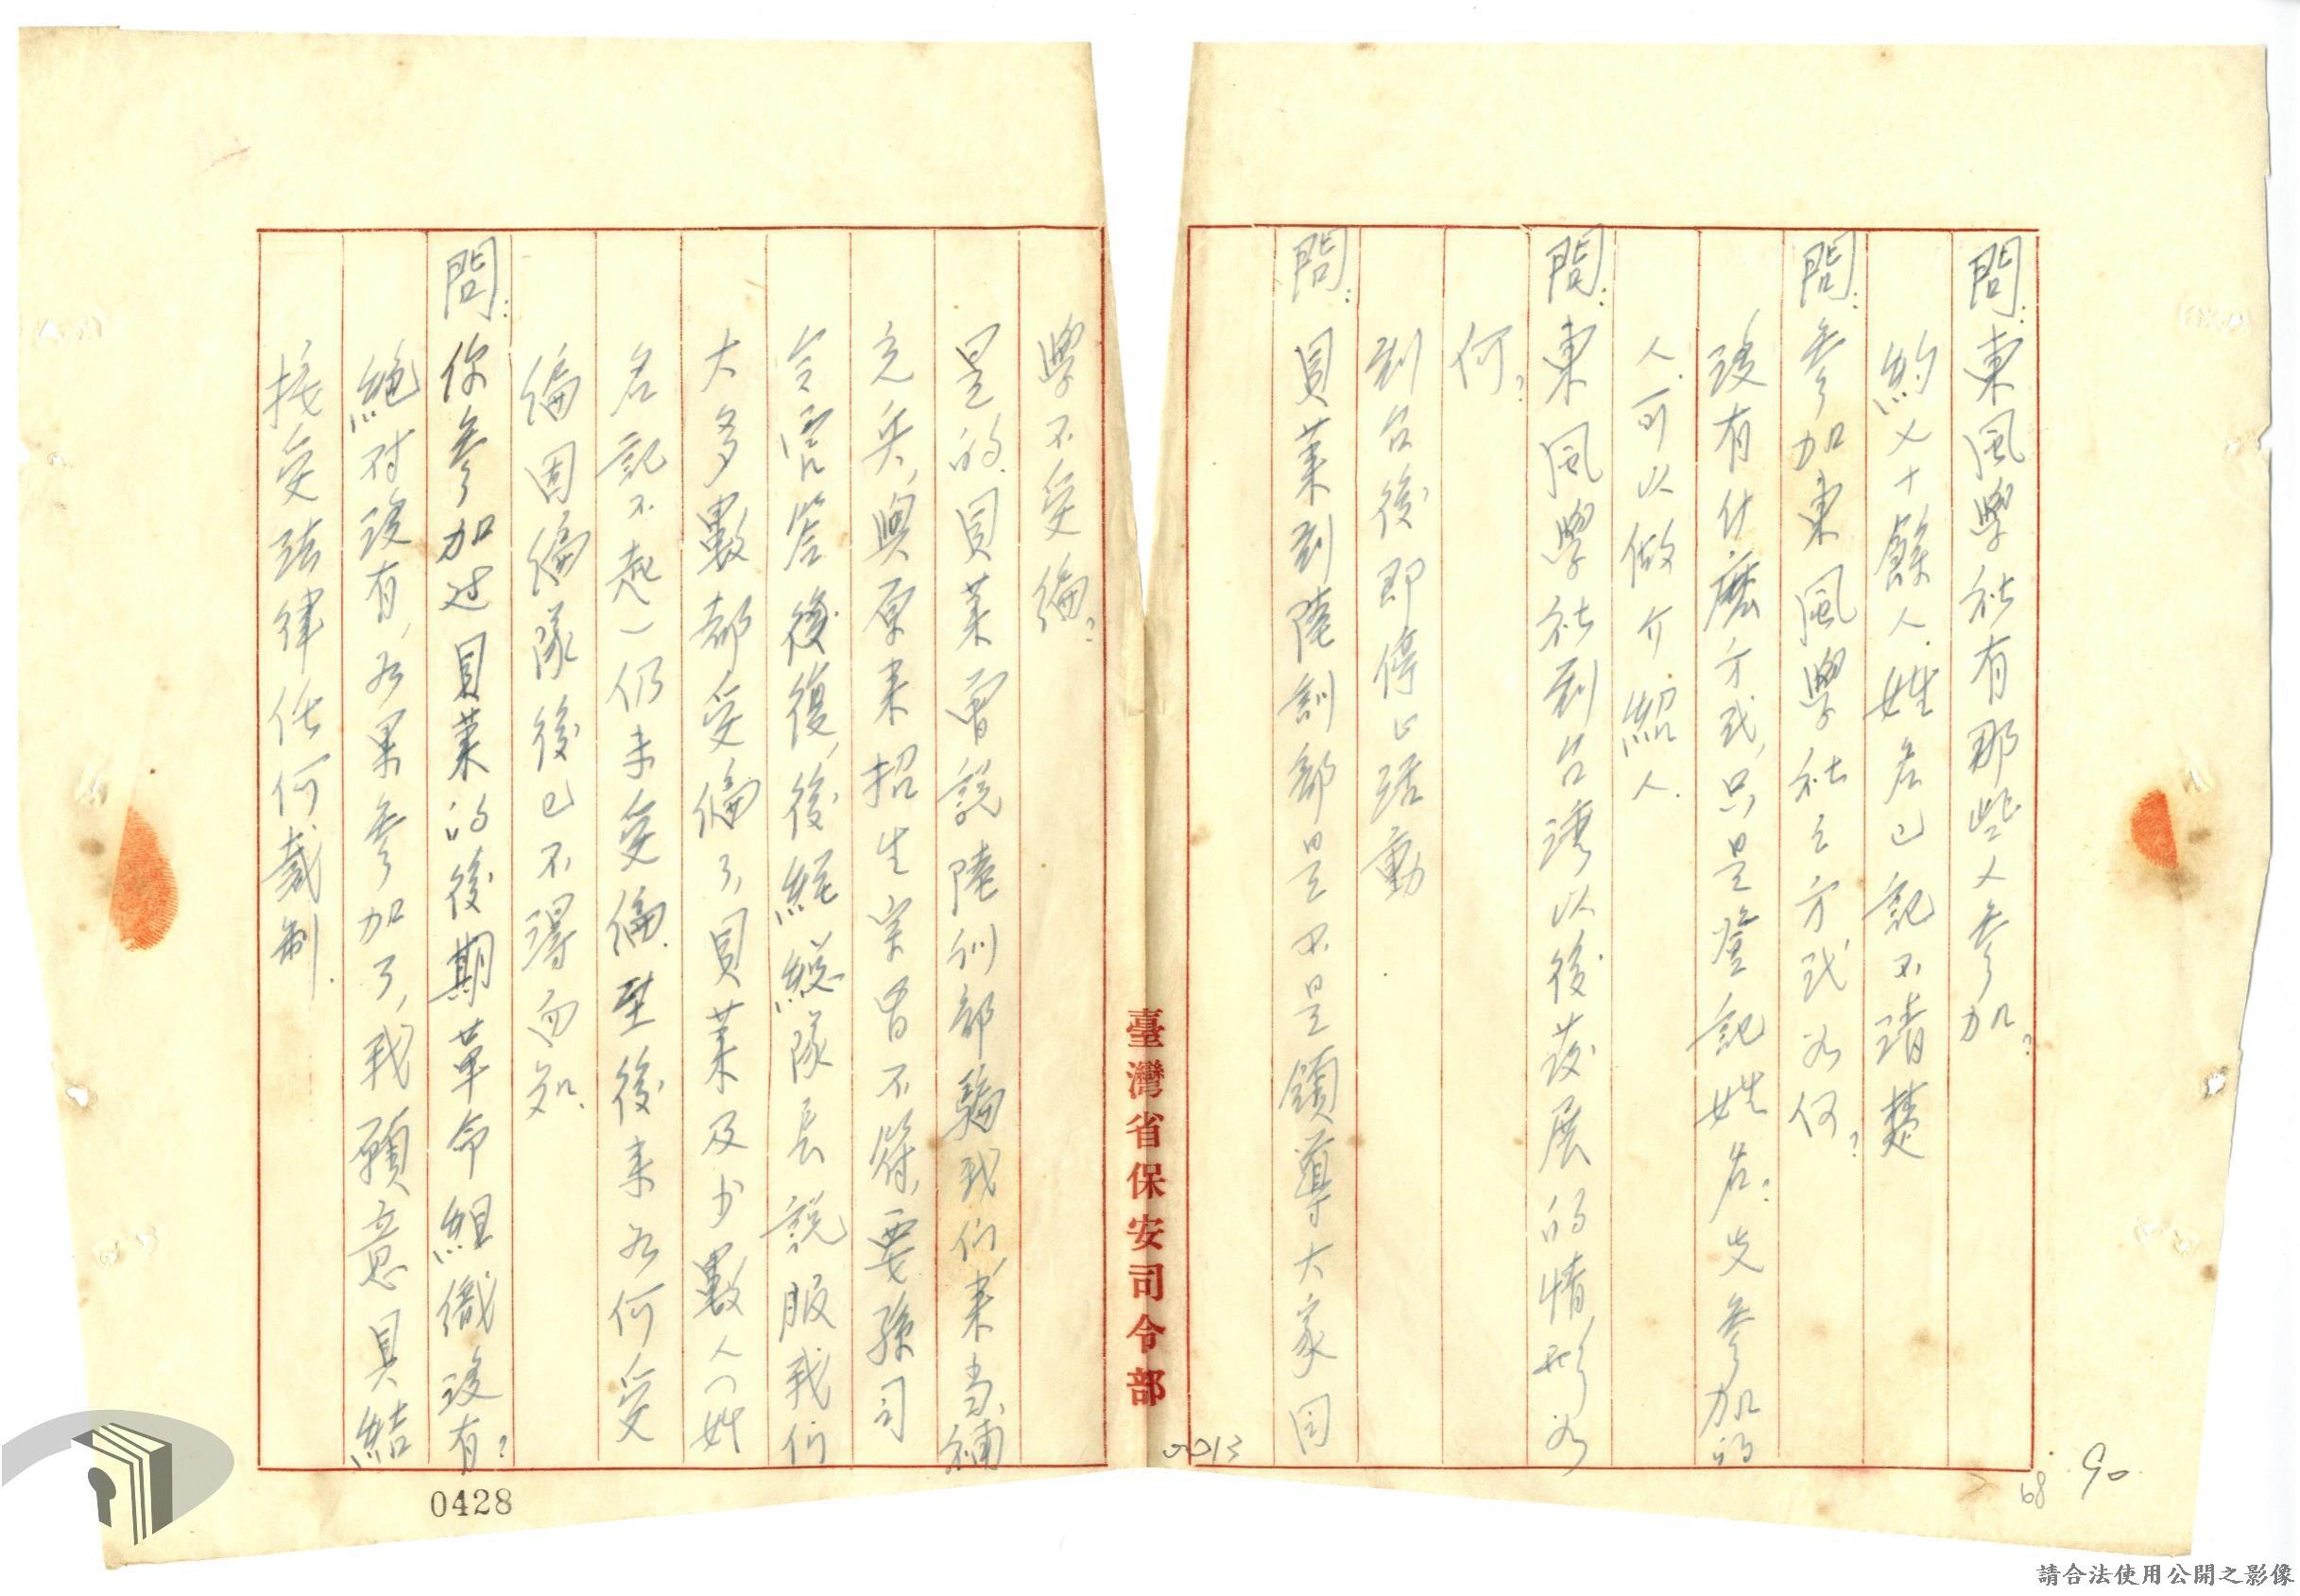 問：東風學社有那些人參加？
約义十餘人．姓名已記不清楚
問：參加東風學社之方式為何？
沒有什麽方式，只是登記姓名：先參加的
人．可以做介紹人．
問：東風學社到台灣以後發展的情形如
何？
到台後即停止活動．
問：員萊到陸訓部是不是領導大家同
學不受編？
是的．員萊曾說陸訓部騙我們來當補
充兵，與原來招生宗旨不符，要孫司
令官答後復，後經總隊長說服我們
大多數都受編了，員萊及少數人（姓
名記不起）仍未受編．至後來如何受
編回編隊後已不得而知．
問：你參加过員萊的後期革命組織沒有？
絕对沒有，如果參加了，我願意具結
接受法律任何裁制．
臺灣省保安司令部
0013
0428
68
90
請合法使用公開之影像